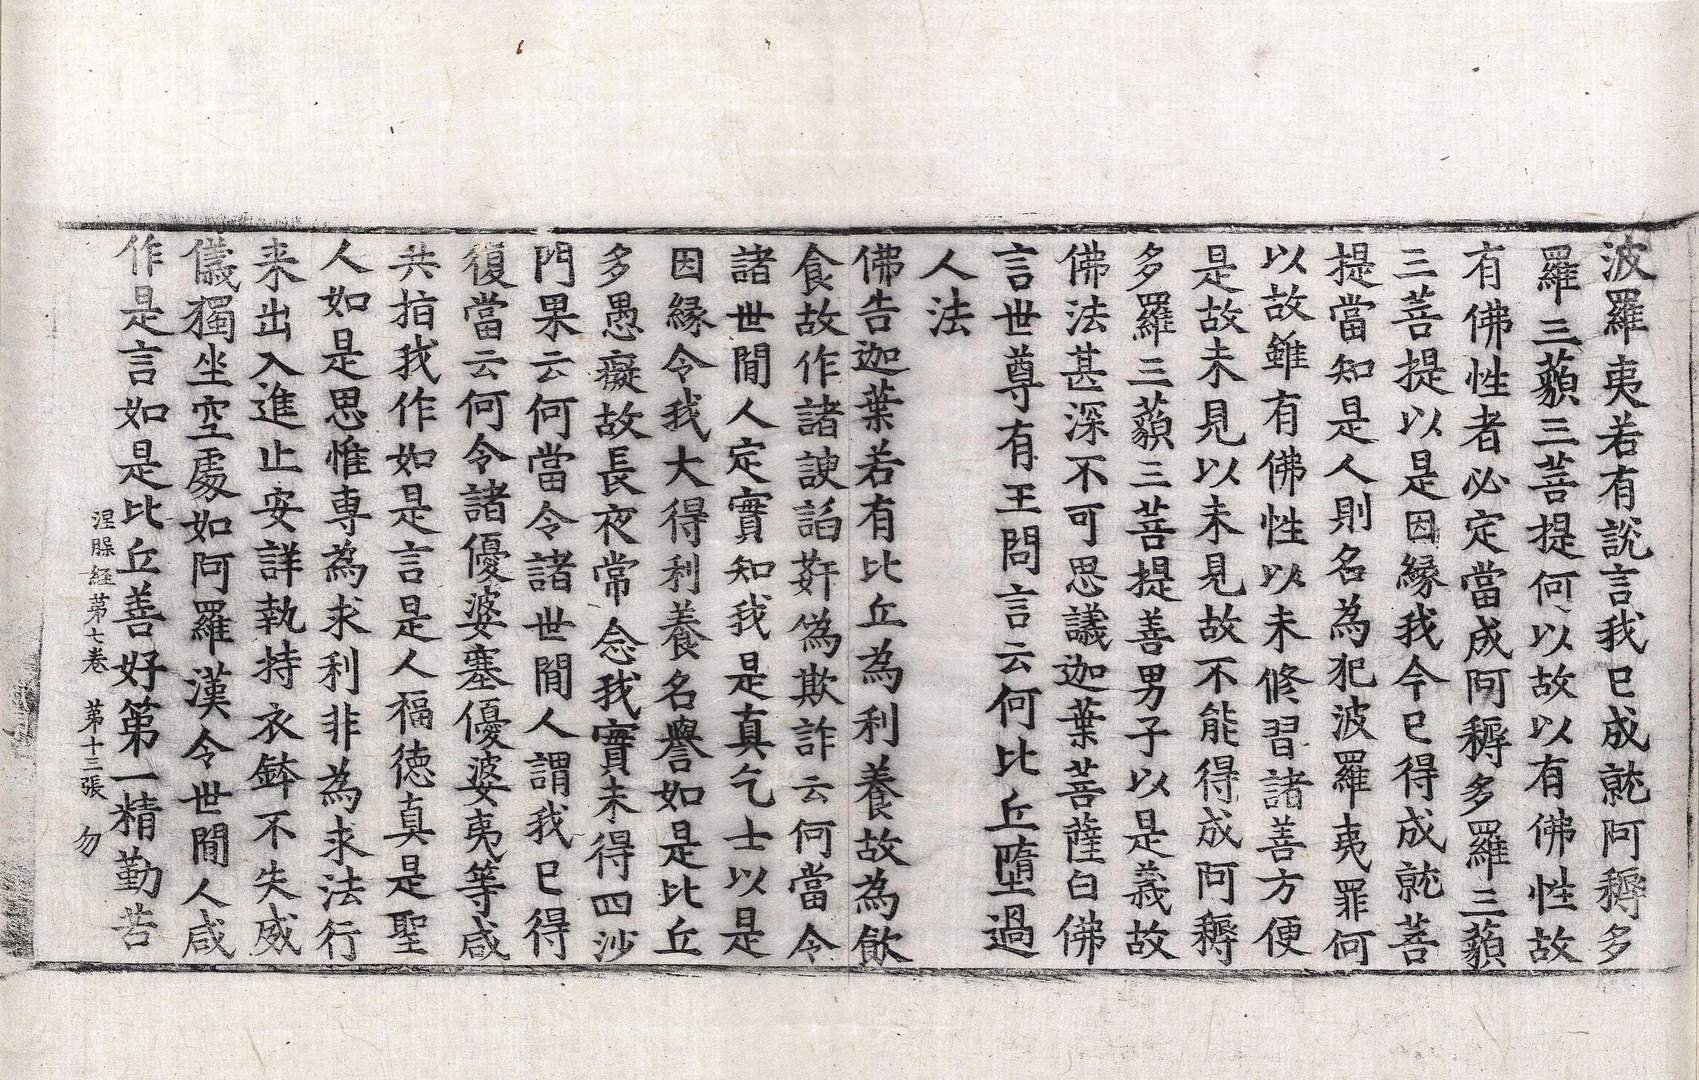 波羅夷若有說言我已成就阿耨多
羅三藐三菩提何以故以有佛性故
有佛性者必定當成阿耨多羅三藐
三菩提以是因緣我今已得成就菩
提當知是人則名為犯波羅夷罪何
以故雖有佛性以未修習諸善方便
是故未見以未見故不能得成阿耨
多羅三藐三菩提善男子以是義故
佛法甚深不可思議迦葉菩薩白佛
言世尊有王問言云何比丘墮過
人法
佛告迦葉若有比丘為利養故為飲
食故作諸諛謟姧偽欺詐云何當令
諸世間人定實知我是真乞士以是
因緣令我大得利養名譽如是比丘
多愚癡故長夜常念我實未得四沙
門果云何當令諸世間人謂我已得
復當云何令諸優婆塞優婆夷等咸
共指我作如是言是人福德真是聖
人如是思惟専為求利非為求法行
来出入進止安詳執持衣鉢不失威
儀獨坐空處如阿羅漢令世間人咸
作是言如是比丘善好第一精勤苦
涅槃経第七巻 第十三張 勿